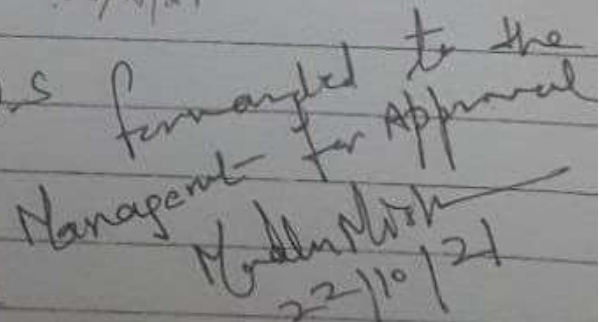 s forwarded to the
Management for Approval
22/10/21